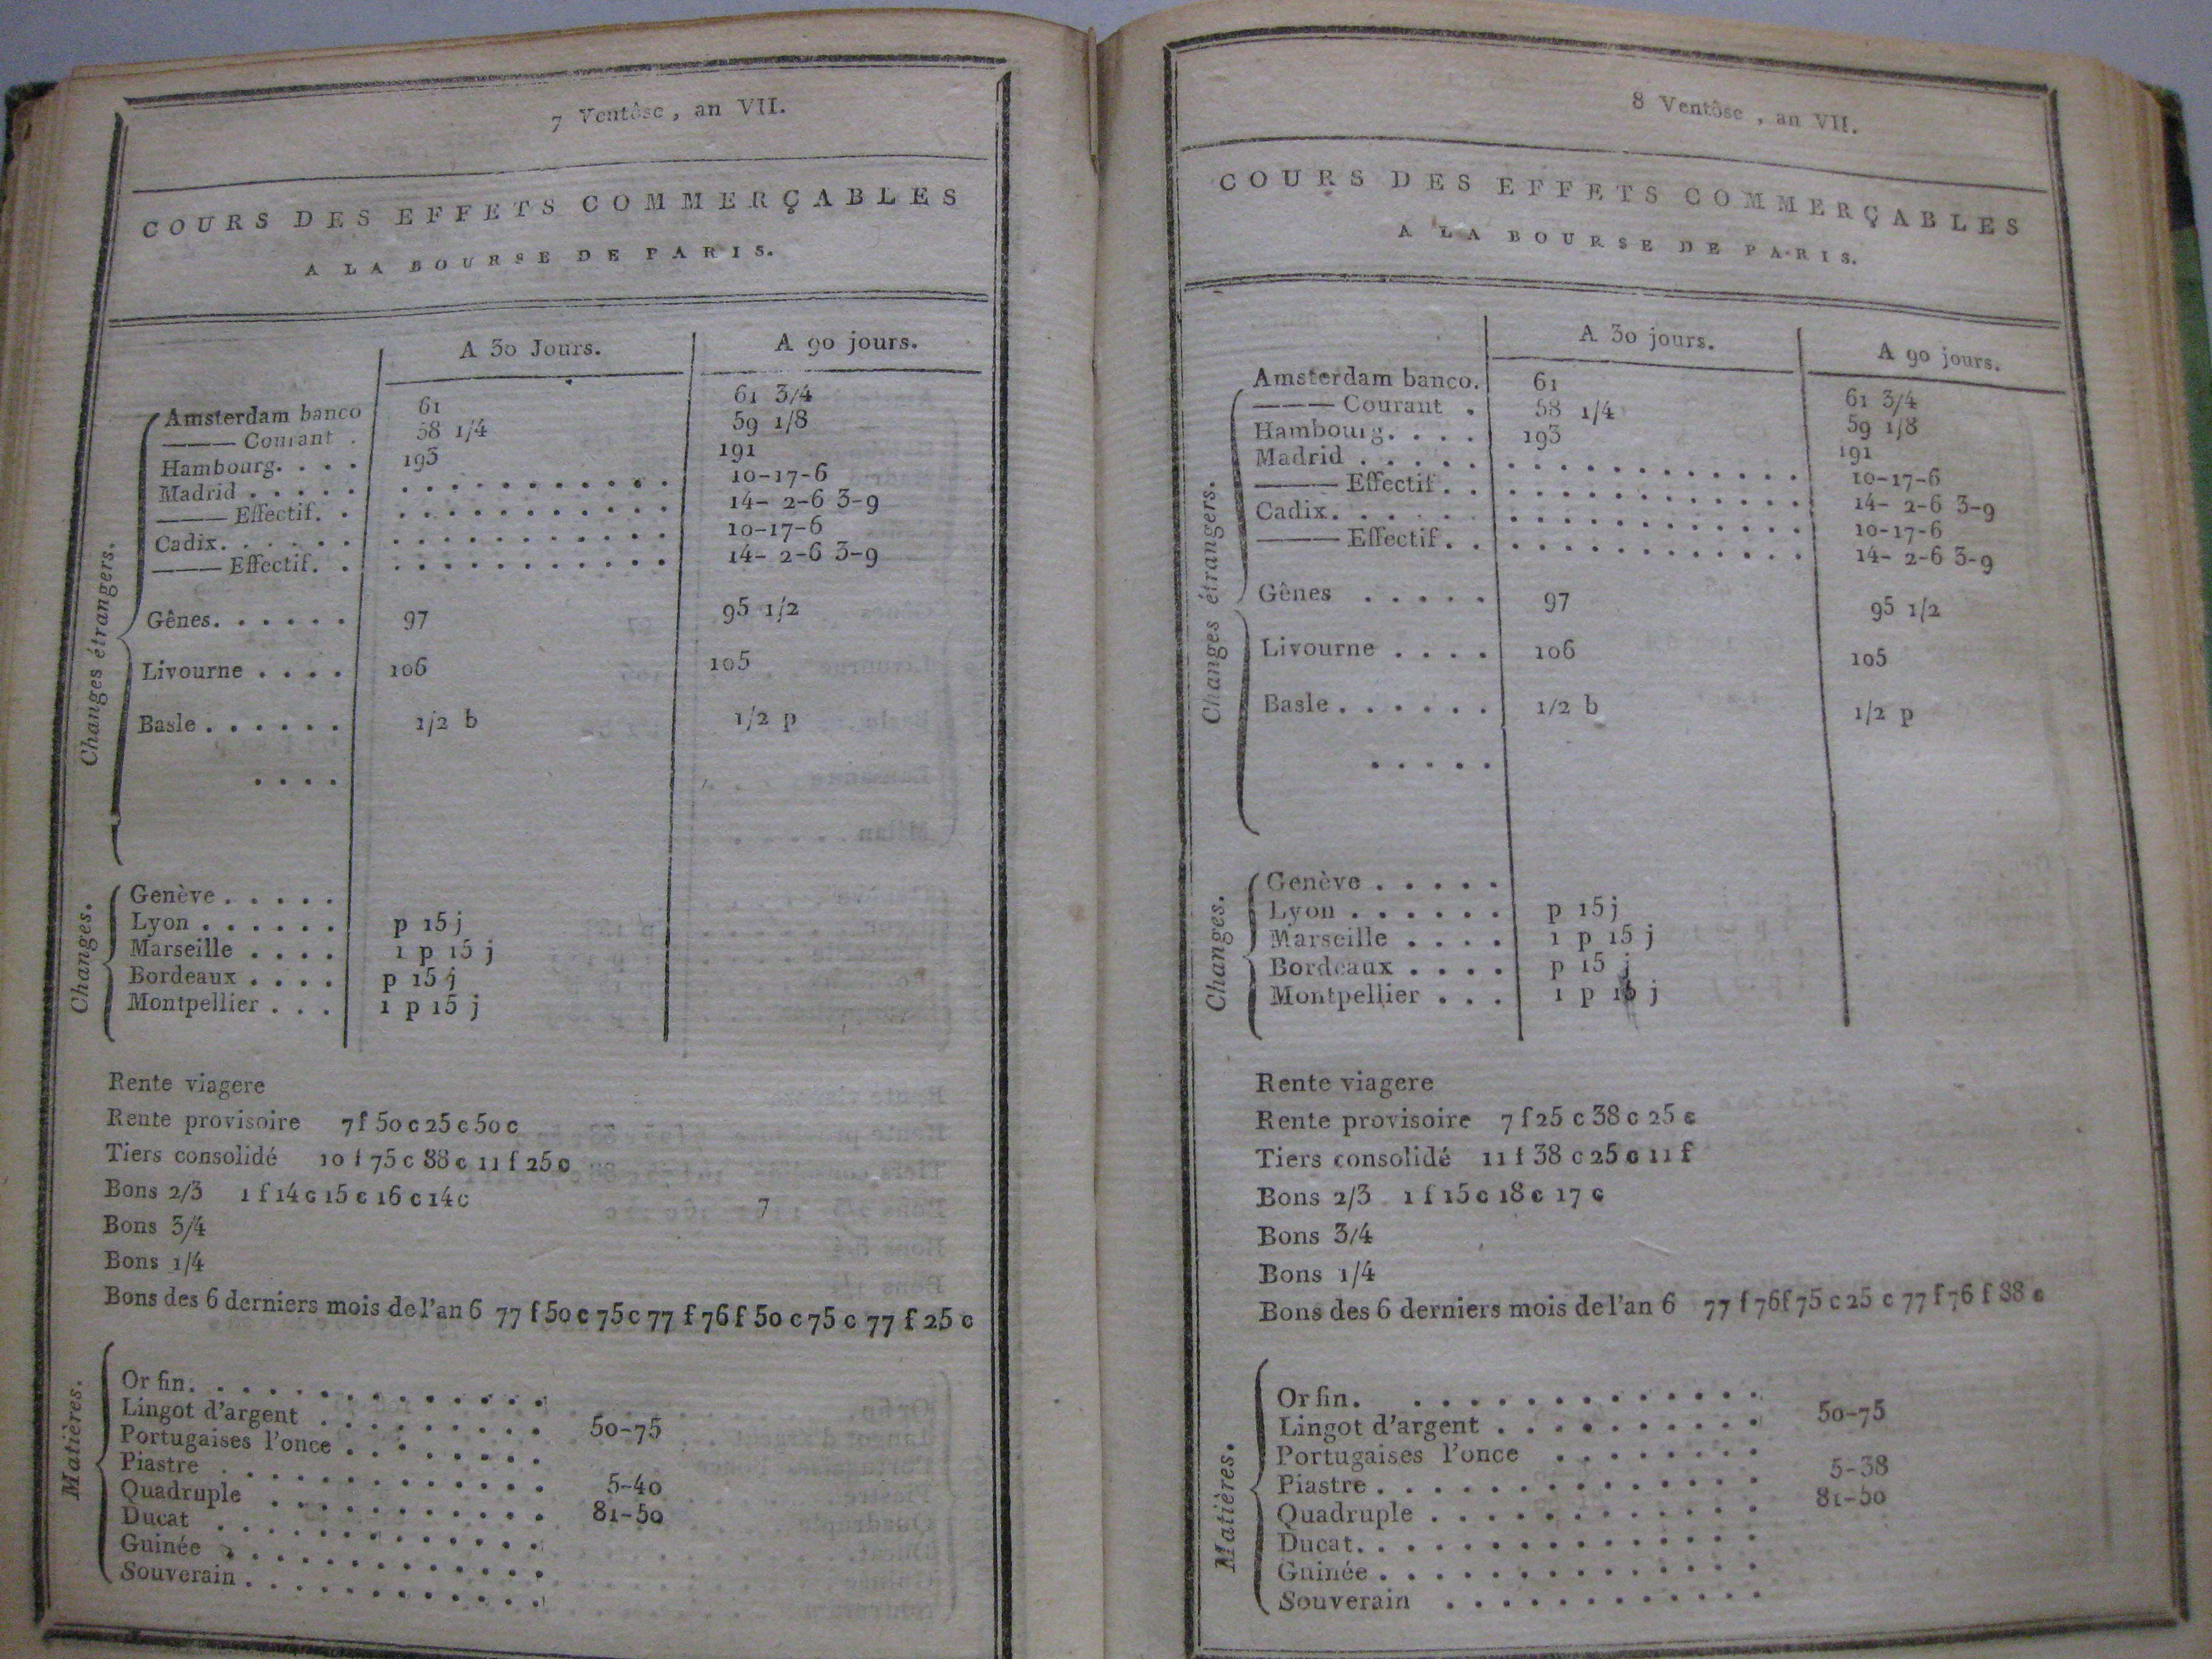 7 Ventôse, an VII.
COURS DES EFFETS COMMERÇABLES
A LA BOURSE DE PARIS.
A 30 Jours. A 90 jours.
Changes étrangers.
Amsterdam banco 61 61 3/4
——— Courant . 58 1/4 59 1/8
Hambourg. . . . 193 191
Madrid . . . . . . . . . . . . . . . . 10-17-6
——— Effectif. . . . . . . . . . . . . 14- 2-6 3-9
Cadix. . . . . . . . . . . . . . . . . 10-17-6
——— Effectif. . . . . . . . . . . . . 14- 2-6 3-9
Gênes. . . . . . 97 95 1/2
Livourne . . . . 106 105
Basle . . . . . . 1/2 b 1/2 p
. . . .
Changes.
Genève . . . . .
Lyon . . . . . . p 15 j
Marseille . . . . 1 p 15 j
Bordeaux . . . . p 15 j
Montpellier . . . 1 p 15 j
Rente viagere
Rente provisoire 7 f 50 c 25 c 50 c
Tiers consolidé 10 f 75 c 88 c 11 f 25 c
Bons 2/3 1 f 14 c 15 c 16 c 14 c
Bons 3/4
Bons 1/4
Bons des 6 derniers mois de l'an 6 77 f 50 c 75 c 77 f 76 f 50 c 75 c 77 f 25 c
Matières.
Or fin. . . . . . . . . . . . . .
Lingot d'argent . . . . . . . . . 50-75
Portugaises l'once . . . . . . . .
Piastre . . . . . . . . . . . . . 5-40
Quadruple . . . . . . . . . . . 81-50
Ducat . . . . . . . . . . . . .
Guinée . . . . . . . . . . . . .
Souverain . . . . . . . . . . . .
8 Ventôse, an VII.
COURS DES EFFETS COMMERÇABLES
A LA BOURSE DE PARIS.
A 30 jours. A 90 jours.
Changes étrangers.
Amsterdam banco. 61 61 3/4
——— Courant . 58 1/4 59 1/8
Hambourg. . . . 193 191
Madrid . . . . . . . . . . . . . . . . 10-17-6
——— Effectif. . . . . . . . . . . . . 14- 2-6 3-9
Cadix. . . . . . . . . . . . . . . . . 10-17-6
——— Effectif. . . . . . . . . . . . . 14- 2-6 3-9
Gênes . . . . . 97 95 1/2
Livourne . . . . 106 105
Basle . . . . . . 1/2 b 1/2 p
. . . . .
Changes.
Genève . . . . .
Lyon . . . . . . p 15 j
Marseille . . . . 1 p 15 j
Bordeaux . . . . p 15 j
Montpellier . . . 1 p 15 j
Rente viagere
Rente provisoire 7 f 25 c 38 c 25 c
Tiers consolidé 11 f 38 c 25 c 11 f
Bons 2/3 1 f 15 c 18 c 17 c
Bons 3/4
Bons 1/4
Bons des 6 derniers mois de l'an 6 77 f 76 f 75 c 25 c 77 f 76 f 88 c
Matières.
Or fin. . . . . . . . . . . . . .
Lingot d'argent . . . . . . . . . . 50-75
Portugaises l'once . . . . . . . .
Piastre . . . . . . . . . . . . . . 5-38
Quadruple . . . . . . . . . . . . 81-50
Ducat. . . . . . . . . . . . . . .
Guinée . . . . . . . . . . . . . .
Souverain . . . . . . . . . . . .